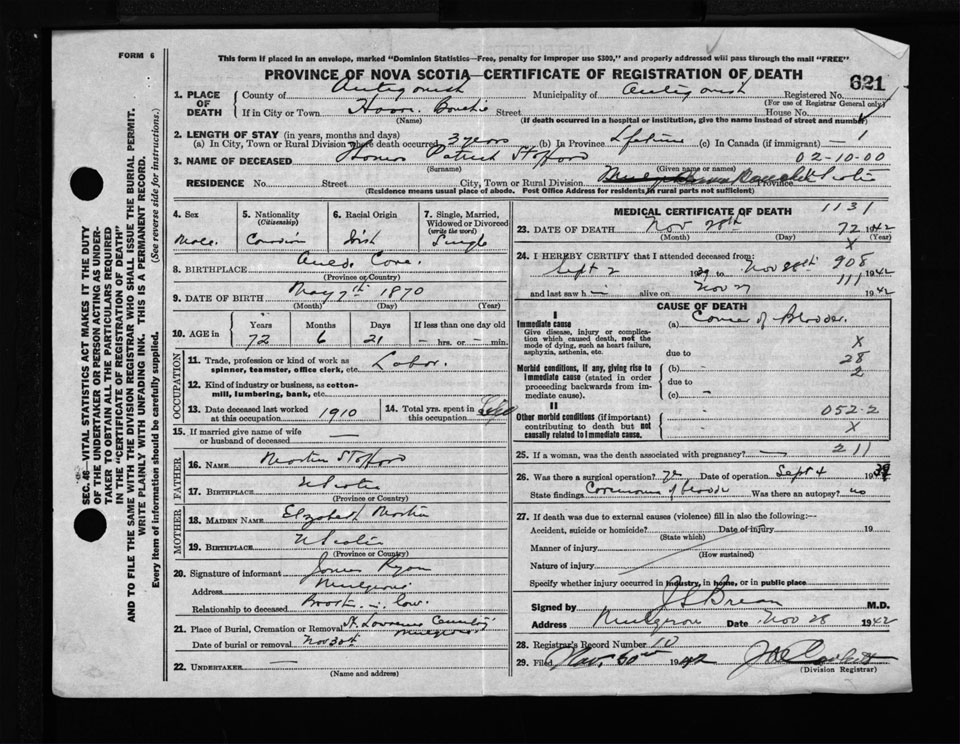 FORM 6
This form if placed in an envelope, marked "Dominion Statistics—Free, penalty for improper use $300," and properly addressed will pass through the mail "FREE"
PROVINCE OF NOVA SCOTIA—CERTIFICATE OF REGISTRATION OF DEATH
621
1. PLACE OF DEATH County of Antigonish Municipality of Antigonish Registered No.
(For use of Registrar General only)
If in City or Town Street House No.
(Name) (If death occurred in a hospital or institution, give the name instead of street and number)
2. LENGTH OF STAY (in years, months and days)
(a) In City, Town or Rural Division where death occurred 3 years (b) In Province Lifetime (c) In Canada (if immigrant) — 1
3. NAME OF DECEASED Patrick 02-10-00
(Surname) (Given name or names)
RESIDENCE No. Street City, Town or Rural Division Province
(Residence means usual place of abode. Post Office Address for residents in rural parts not sufficient)
4. Sex 5. Nationality (Citizenship) 6. Racial Origin 7. Single, Married, Widowed or Divorced (write the word)
Male Irish Single
8. BIRTHPLACE Cove
(Province or Country)
9. DATE OF BIRTH May 7th 1870
(Month) (Day) (Year)
10. AGE in Years Months Days If less than one day old
72 6 21 — hrs. or — min.
OCCUPATION
11. Trade, profession or kind of work as spinner, teamster, office clerk, etc. Labor.
12. Kind of industry or business, as cotton-mill, lumbering, bank, etc.
13. Date deceased last worked at this occupation 1910 14. Total yrs. spent in this occupation
15. If married give name of wife or husband of deceased —
FATHER
16. Name Martin
17. Birthplace N Scotia
(Province or Country)
MOTHER
18. Maiden Name Elizabeth Martin
19. Birthplace N Scotia
(Province or Country)
20. Signature of informant James Ryan
Address Mulgrave
Relationship to deceased Broth in law.
21. Place of Burial, Cremation or Removal St. Lawrence Cemetery Mulgrave
Date of burial or removal Nov 30th
22. UNDERTAKER —
(Name and address)
MEDICAL CERTIFICATE OF DEATH 1131
23. DATE OF DEATH Nov 28th 72 1942
(Month) (Day) (Year)
X
24. I HEREBY CERTIFY that I attended deceased from: 908
Sept 2 1939 to Nov 28th 1942
and last saw h im alive on Nov 27 111 1942
CAUSE OF DEATH
I
Immediate cause (a) Cancer of Bladder.
Give disease, injury or complication which caused death, not the mode of dying, such as heart failure, asphyxia, asthenia, etc. X
due to 28
Morbid conditions, if any, giving rise to immediate cause (stated in order proceeding backwards from immediate cause). (b) — 2
due to
(c) —
II
Other morbid conditions (if important) contributing to death but not causally related to immediate cause. 052-2
X
25. If a woman, was the death associated with pregnancy? — 211
26. Was there a surgical operation? Date of operation Sept 4 1939
State findings Carcinoma of bladder Was there an autopsy? no
27. If death was due to external causes (violence) fill in also the following:—
Accident, suicide or homicide? Date of injury 19
(State which)
Manner of injury
(How sustained)
Nature of injury
Specify whether injury occurred in industry, in home, or in public place
Signed by M.D.
Address Mulgrave Date Nov 28 1942
28. Registrar's Record Number 10
29. Filed Nov. 30th 1942
(Division Registrar)
SEC. 46—VITAL STATISTICS ACT MAKES IT THE DUTY
OF THE UNDERTAKER OR PERSON ACTING AS UNDERTAKER TO OBTAIN ALL THE PARTICULARS REQUIRED
IN THE "CERTIFICATE OF REGISTRATION OF DEATH"
AND TO FILE THE SAME WITH THE DIVISION REGISTRAR WHO SHALL ISSUE THE BURIAL PERMIT.
WRITE PLAINLY WITH UNFADING INK. THIS IS A PERMANENT RECORD.
Every item of information should be carefully supplied. (See reverse side for instructions.)